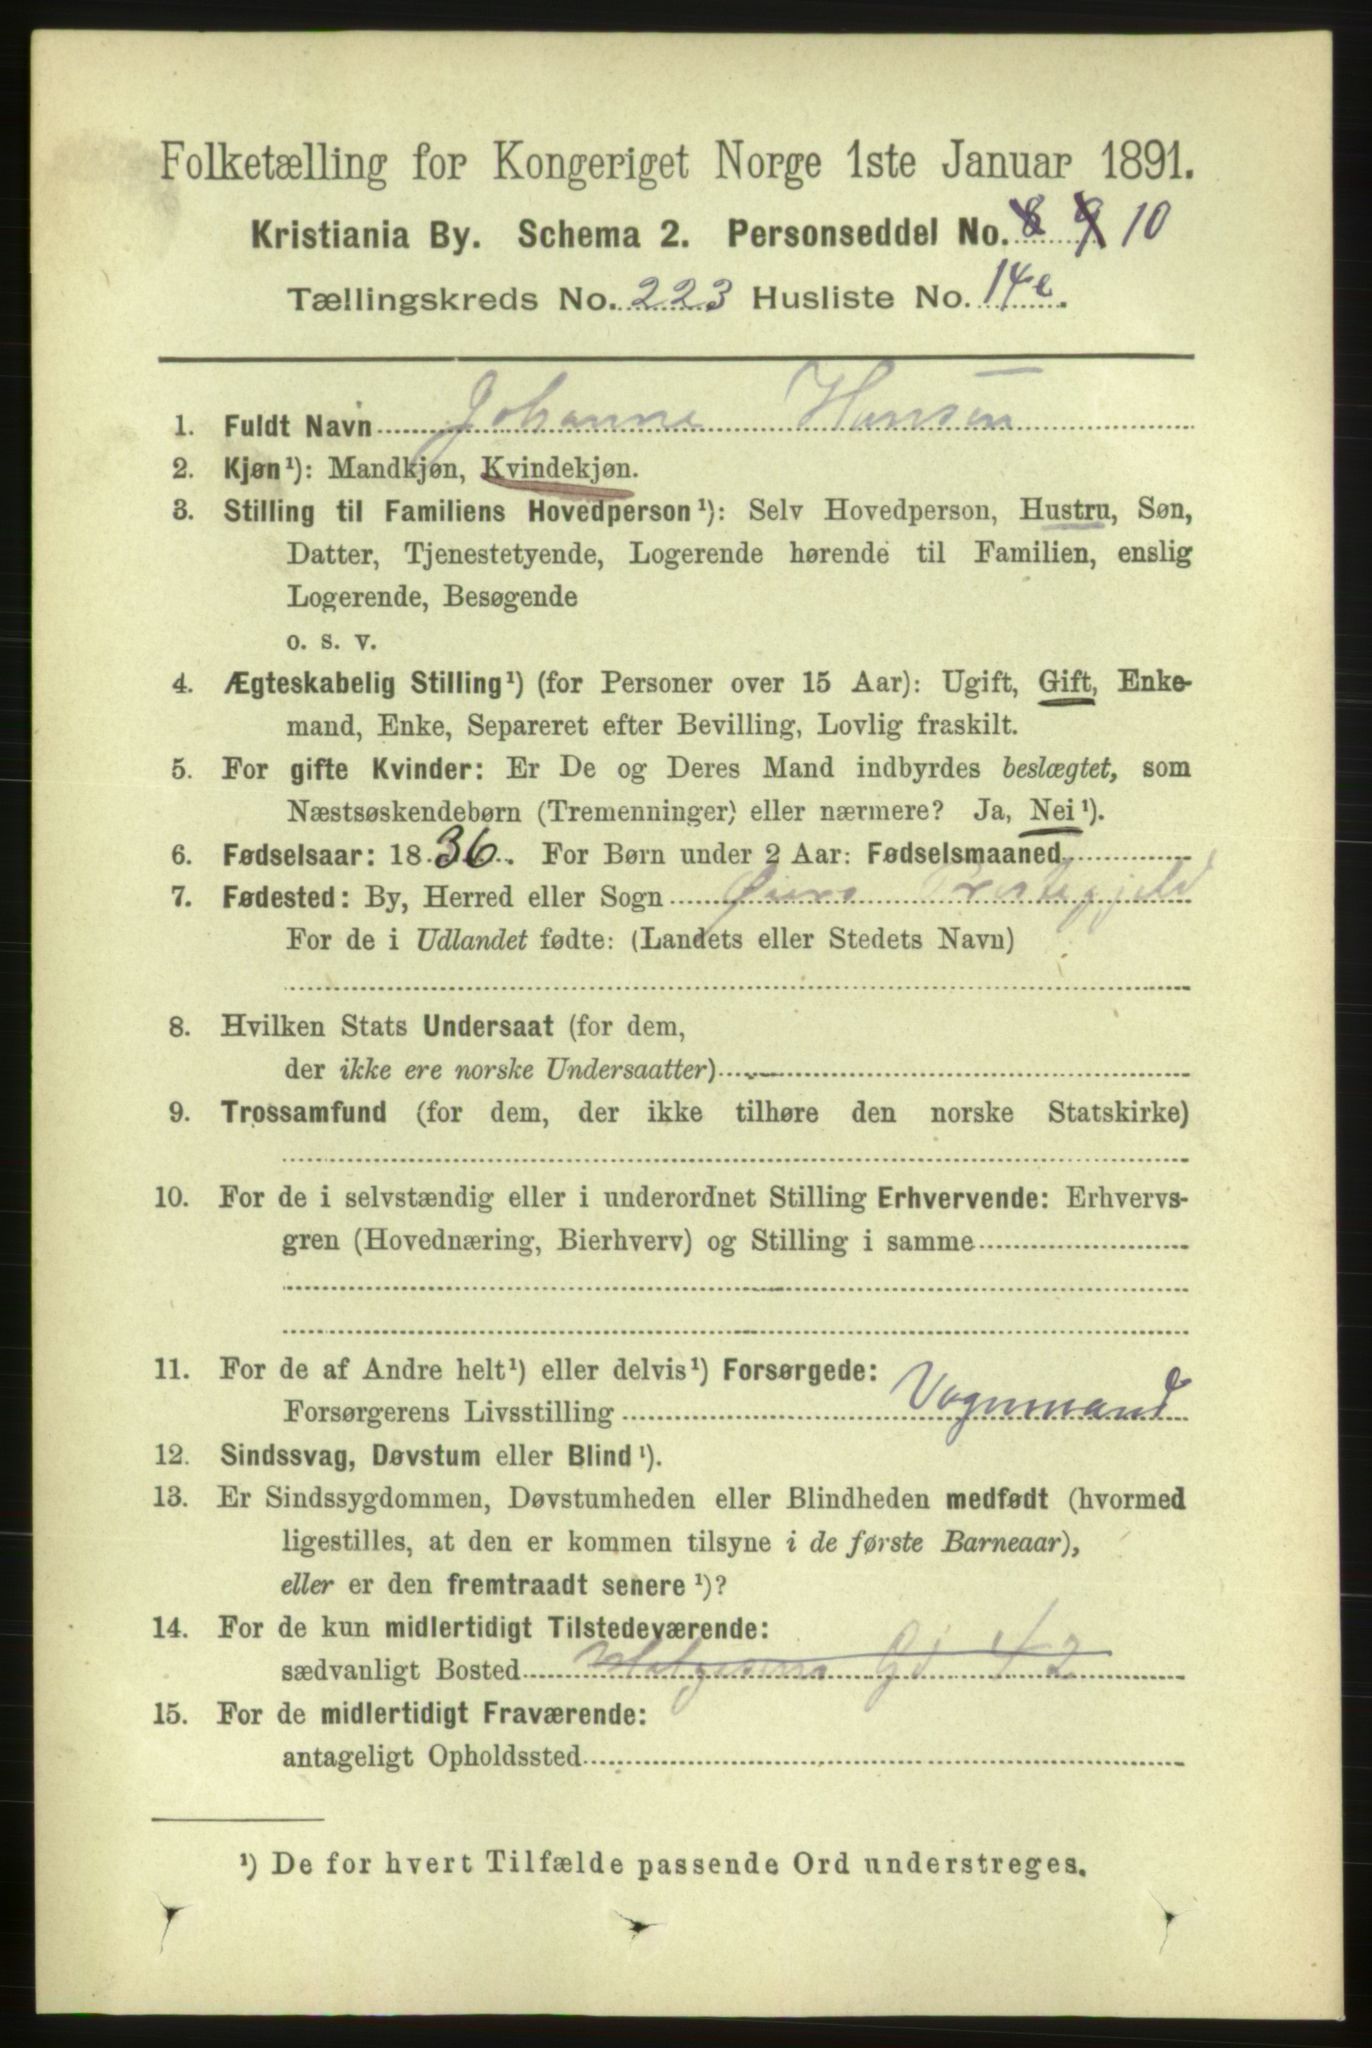 Folketælling for Kongeriget Norge 1ste Januar 1891.
Kristiania By. Schema 2. Personseddel No. 8 9 10
Tællingskreds No. 223 Husliste No. 14e.
1. Fuldt Navn Johanne Hansen
2. Kjøn¹): Mandkjøn, Kvindekjøn.
3. Stilling til Familiens Hovedperson¹): Selv Hovedperson, Hustru, Søn,
Datter, Tjenestetyende, Logerende hørende til Familien, enslig
Logerende, Besøgende
o. s. v.
4. Ægteskabelig Stilling¹) (for Personer over 15 Aar): Ugift, Gift, Enke-
mand, Enke, Separeret efter Bevilling, Lovlig fraskilt.
5. For gifte Kvinder: Er De og Deres Mand indbyrdes beslægtet, som
Næstsøskendebørn (Tremenninger) eller nærmere? Ja, Nei¹).
6. Fødselsaar: 1836. For Børn under 2 Aar: Fødselsmaaned
7. Fødested: By, Herred eller Sogn Præstegjeld
For de i Udlandet fødte: (Landets eller Stedets Navn)
8. Hvilken Stats Undersaat (for dem,
der ikke ere norske Undersaatter)
9. Trossamfund (for dem, der ikke tilhøre den norske Statskirke)
10. For de i selvstændig eller i underordnet Stilling Erhvervende: Erhvervs-
gren (Hovednæring, Bierhverv) og Stilling i samme
11. For de af Andre helt¹) eller delvis¹) Forsørgede:
Forsørgerens Livsstilling Vognmand
12. Sindssvag, Døvstum eller Blind¹).
13. Er Sindssygdommen, Døvstumheden eller Blindheden medfødt (hvormed
ligestilles, at den er kommen tilsyne i de første Barneaar),
eller er den fremtraadt senere¹)?
14. For de kun midlertidigt Tilstedeværende:
sædvanligt Bosted Gd 42
15. For de midlertidigt Fraværende:
antageligt Opholdssted
¹) De for hvert Tilfælde passende Ord understreges.